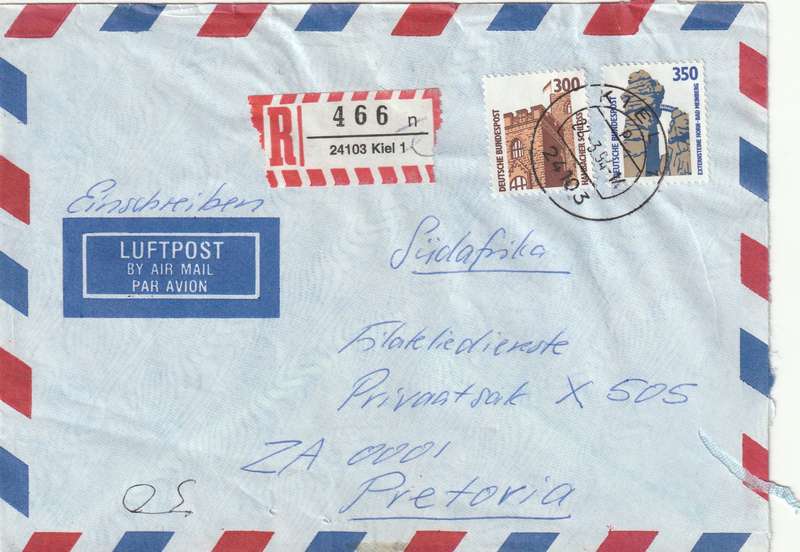 R
466 n
24103 Kiel 1
300
DEUTSCHE BUNDESPOST
HAMBACHER SCHLOSS
350
DEUTSCHE BUNDESPOST
EXTERNSTEINE HORN-BAD MEINBERG
KIEL
24103
Einschreiben
LUFTPOST
BY AIR MAIL
PAR AVION
Südafrika
Filateliedienste
Privaatsak X 505
ZA 0001
Pretoria